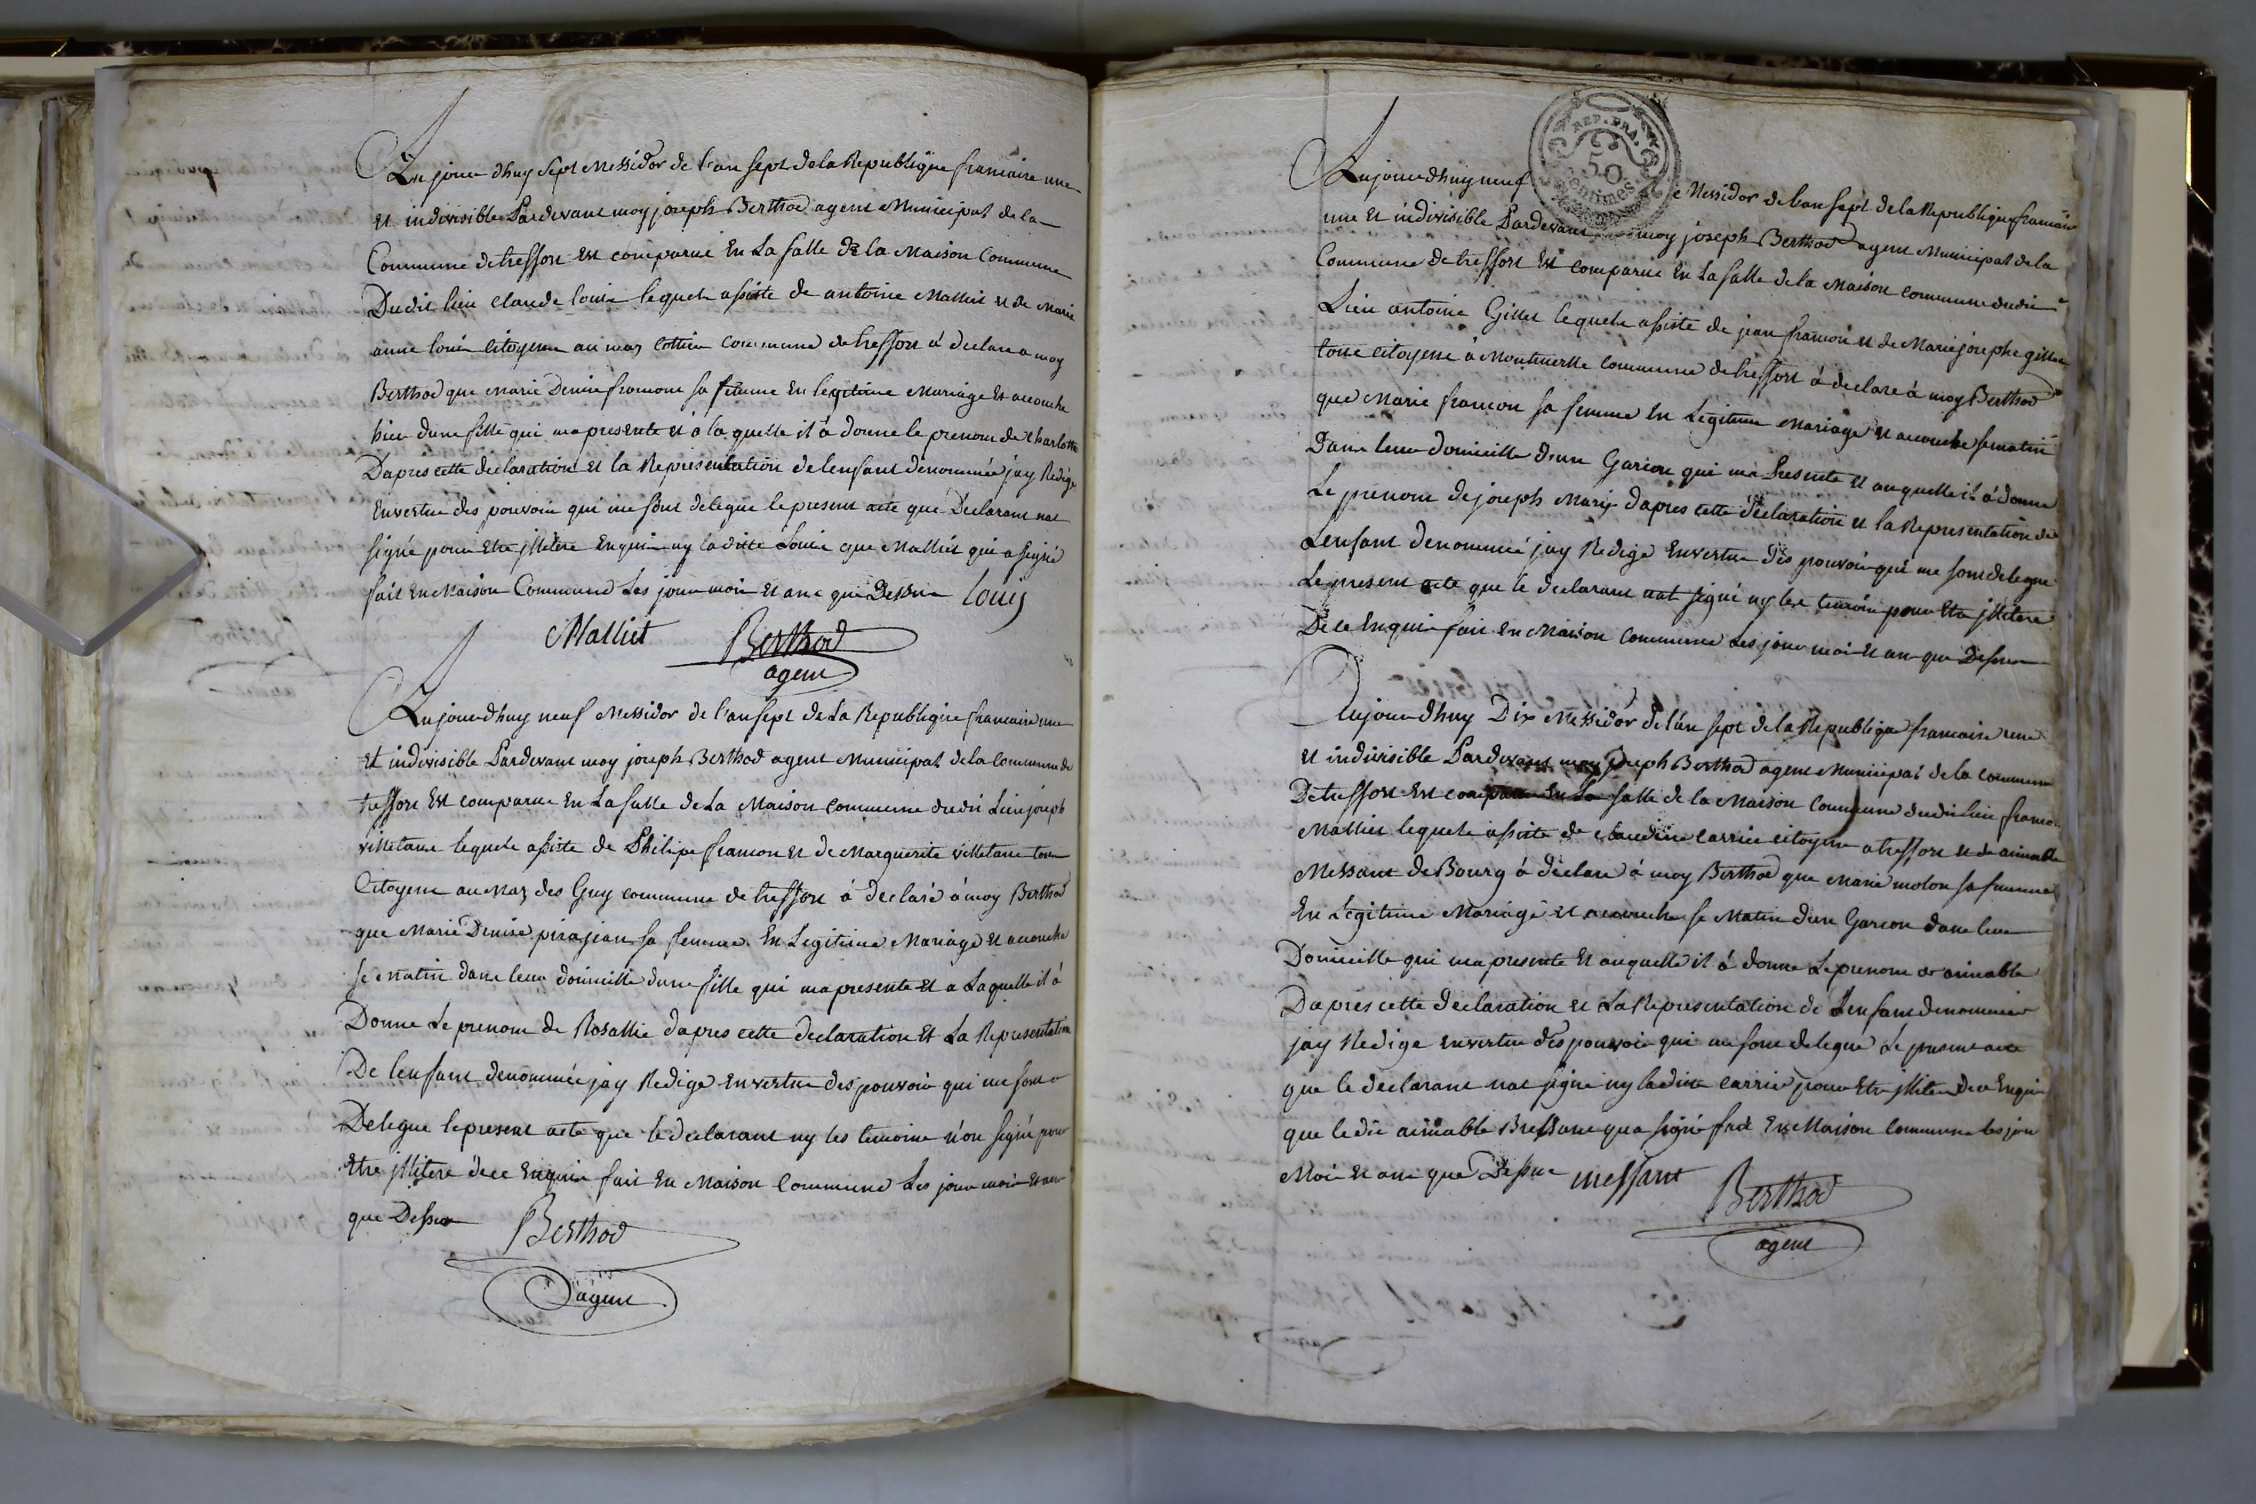 Aujourdhuy sept Messidor de l'an sept de la Republique francaise une
et indivisible Pardevant moy joseph Berthod agent Municipal de la
Commune de treffort est comparue En La salle de la Maison Commune
Dudit lieu claude louis lequele assiste de antoine Malliet et de Marie
anne louis citoyens au mas cottier commune de treffort à declare a moy
Berthod que Marie Denise francont sa femme En legitime Mariage Et accouche
hier dune fille qui ma presente et à laquelle il à donne le prenom de charlotte
Dapres cette declaration et la Representation de lenfant denommée jay Redige
Envertu des pouvoir qui me sont delegue le present acte que Declarant nat
signé pour Etre jllitere Enquis ny laditte Louis que Malliet qui a signé
fait En Maison Commune Les jour mois et an que Dessus louis
Malliet Berthod
agent
Aujourdhuy neuf Messidor de l'an sept de La Republique francaise une
et indivisible Pardevant moy joseph Berthod agent Municipal de la Commune de
treffort Est comparue En La salle de La Maison commune dudit Lieu joseph
villetane lequele assiste de Philipe francon et de Marguerite villetane tous
Citoyens au Maz des Guy commune de treffort à declaré à moy Berthod
que Marie Denise pirajean sa femme En Legitime Mariage et accouche
se matin dans leur domicille dune fille qui ma presente et a Laquelle il à
Donne Le prenom de Rosallie dapres cette declaration et La Representation
De lenfant denommée jay Redige En vertu des pouvoir qui me sont
Delegue le present acte que le declarant ny les temoins n'on signé pour
Etre jllitere de ce Enquis fait En Maison Commune Les jour mois et an
que Dessus Berthod
agent
REP. FRA.
50
centimes
Aujourdhuy neuf Messidor de lan sept de la Republique francaise
une et indivisible Pardevant moy joseph Berthod agent Municipal de la
Commune de treffort Est comparue En La salle de la Maison commune dudit
Lieu antoine Gillet lequele assiste de jean francois et de Marie josephe gillet
tous citoyens à Montmerle commune de treffort à declare à moy Berthod
que Marie francon sa femme En Legitime Mariage et accouche se matin
Dans leur domicille dun Garcon qui ma Presente et auquelle il à donne
Le prenom de joseph Marie dapres cette declaration et la Representation de
Lenfant denommé jay Redige Envertu des pouvoir qui me sont delegue
Le present acte que le declarant nat signé ny les temoins pour Etre jllitere
De ce Enquis fait En Maison Commune Les jour mois et an que Dessus
Aujourdhuy Dix Messidor de lan sept de la Republique francaise une
et indivisible Pardevant moy joseph Berthod agent Municipal de la commune
De treffort Est comparue En La salle de la Maison Commune dudit lieu francois
Mallier lequele assiste de claudine carrier citoyens a treffort et de aimable
Messant de Bourg à declare à moy Berthod que Marie molon sa femme
En Legitime Mariage et accouche se Matin dun Garcon dans leur
Domicille qui ma presente et auquelle il à donne Le prenom de aimable
Dapres cette declaration et La Representation de Lenfant denommée
jay Redige envertu des pouvoir qui me sont delegue Le present acte
que le declarant nat signé ny laditte carrier pour Etre jllitere de ce Enquis
que ledit aimable qua signé fait En Maison Commune les jour
Mois et an que Dessus messant
Berthod
agent